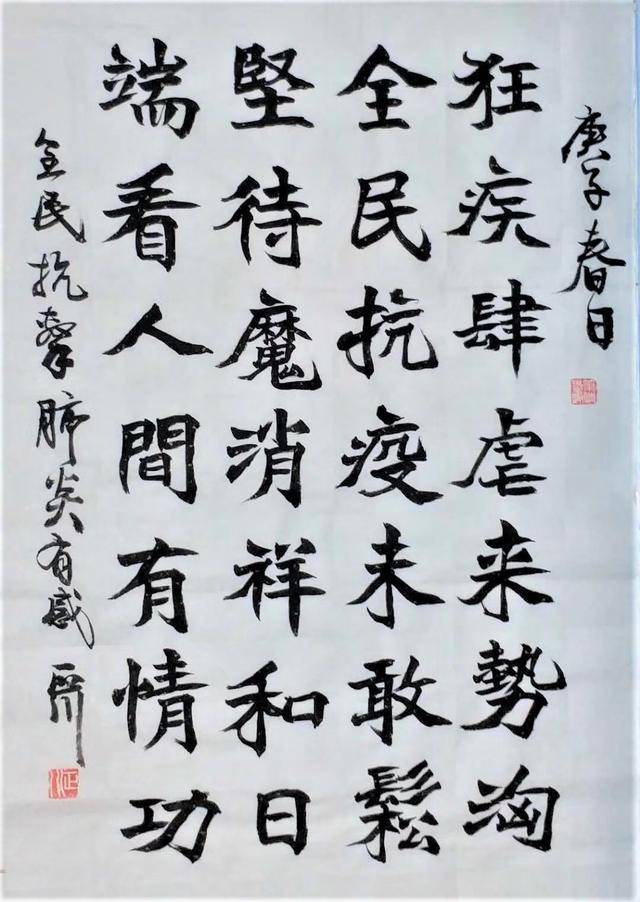 庚子春日
狂疾肆虐来勢洶
全民抗疫未敢鬆
堅待魔消祥和日
端看人間有情功
全民抗擊肺炎有感